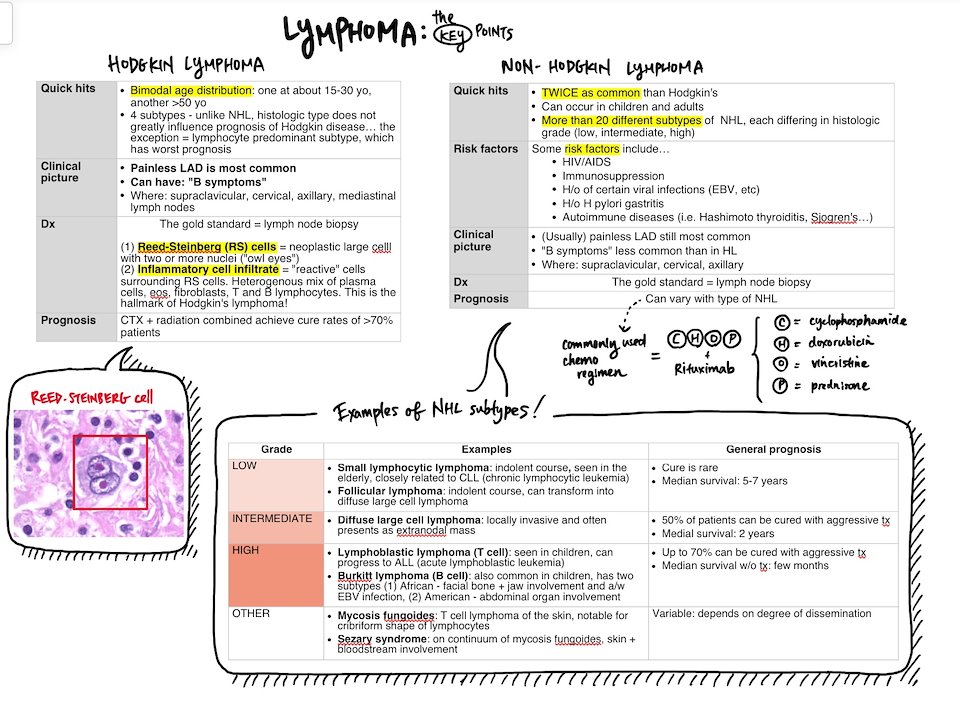 LYMPHOMA: the KEY POINTS
HODGKIN LYMPHOMA
Quick hits
• Bimodal age distribution: one at about 15-30 yo,
another >50 yo
• 4 subtypes - unlike NHL, histologic type does not
greatly influence prognosis of Hodgkin disease… the
exception = lymphocyte predominant subtype, which
has worst prognosis
Clinical
picture
• Painless LAD is most common
• Can have: "B symptoms"
• Where: supraclavicular, cervical, axillary, mediastinal
lymph nodes
Dx
The gold standard = lymph node biopsy
(1) Reed-Steinberg (RS) cells = neoplastic large celll
with two or more nuclei ("owl eyes")
(2) Inflammatory cell infiltrate = "reactive" cells
surrounding RS cells. Heterogenous mix of plasma
cells, eos, fibroblasts, T and B lymphocytes. This is the
hallmark of Hodgkin's lymphoma!
Prognosis
CTX + radiation combined achieve cure rates of >70%
patients
REED-STEINBERG cell
NON-HODGKIN LYMPHOMA
Quick hits
• TWICE as common than Hodgkin's
• Can occur in children and adults
• More than 20 different subtypes of NHL, each differing in histologic
grade (low, intermediate, high)
Risk factors
Some risk factors include…
• HIV/AIDS
• Immunosuppression
• H/o of certain viral infections (EBV, etc)
• H/o H pylori gastritis
• Autoimmune diseases (i.e. Hashimoto thyroiditis, Sjogren's…)
Clinical
picture
• (Usually) painless LAD still most common
• "B symptoms" less common than in HL
• Where: supraclavicular, cervical, axillary
Dx
The gold standard = lymph node biopsy
Prognosis
Can vary with type of NHL
commonly used
chemo
regimen
= C H O P
+
Rituximab
C = cyclophosphamide
H = doxorubicin
O = vincristine
P = prednisone
Examples of NHL subtypes!
Grade
Examples
General prognosis
LOW
• Small lymphocytic lymphoma: indolent course, seen in the
elderly, closely related to CLL (chronic lymphocytic leukemia)
• Follicular lymphoma: indolent course, can transform into
diffuse large cell lymphoma
• Cure is rare
• Median survival: 5-7 years
INTERMEDIATE
• Diffuse large cell lymphoma: locally invasive and often
presents as extranodal mass
• 50% of patients can be cured with aggressive tx
• Medial survival: 2 years
HIGH
• Lymphoblastic lymphoma (T cell): seen in children, can
progress to ALL (acute lymphoblastic leukemia)
• Burkitt lymphoma (B cell): also common in children, has two
subtypes (1) African - facial bone + jaw involvement and a/w
EBV infection, (2) American - abdominal organ involvement
• Up to 70% can be cured with aggressive tx
• Median survival w/o tx: few months
OTHER
• Mycosis fungoides: T cell lymphoma of the skin, notable for
cribriform shape of lymphocytes
• Sezary syndrome: on continuum of mycosis fungoides, skin +
bloodstream involvement
Variable: depends on degree of dissemination